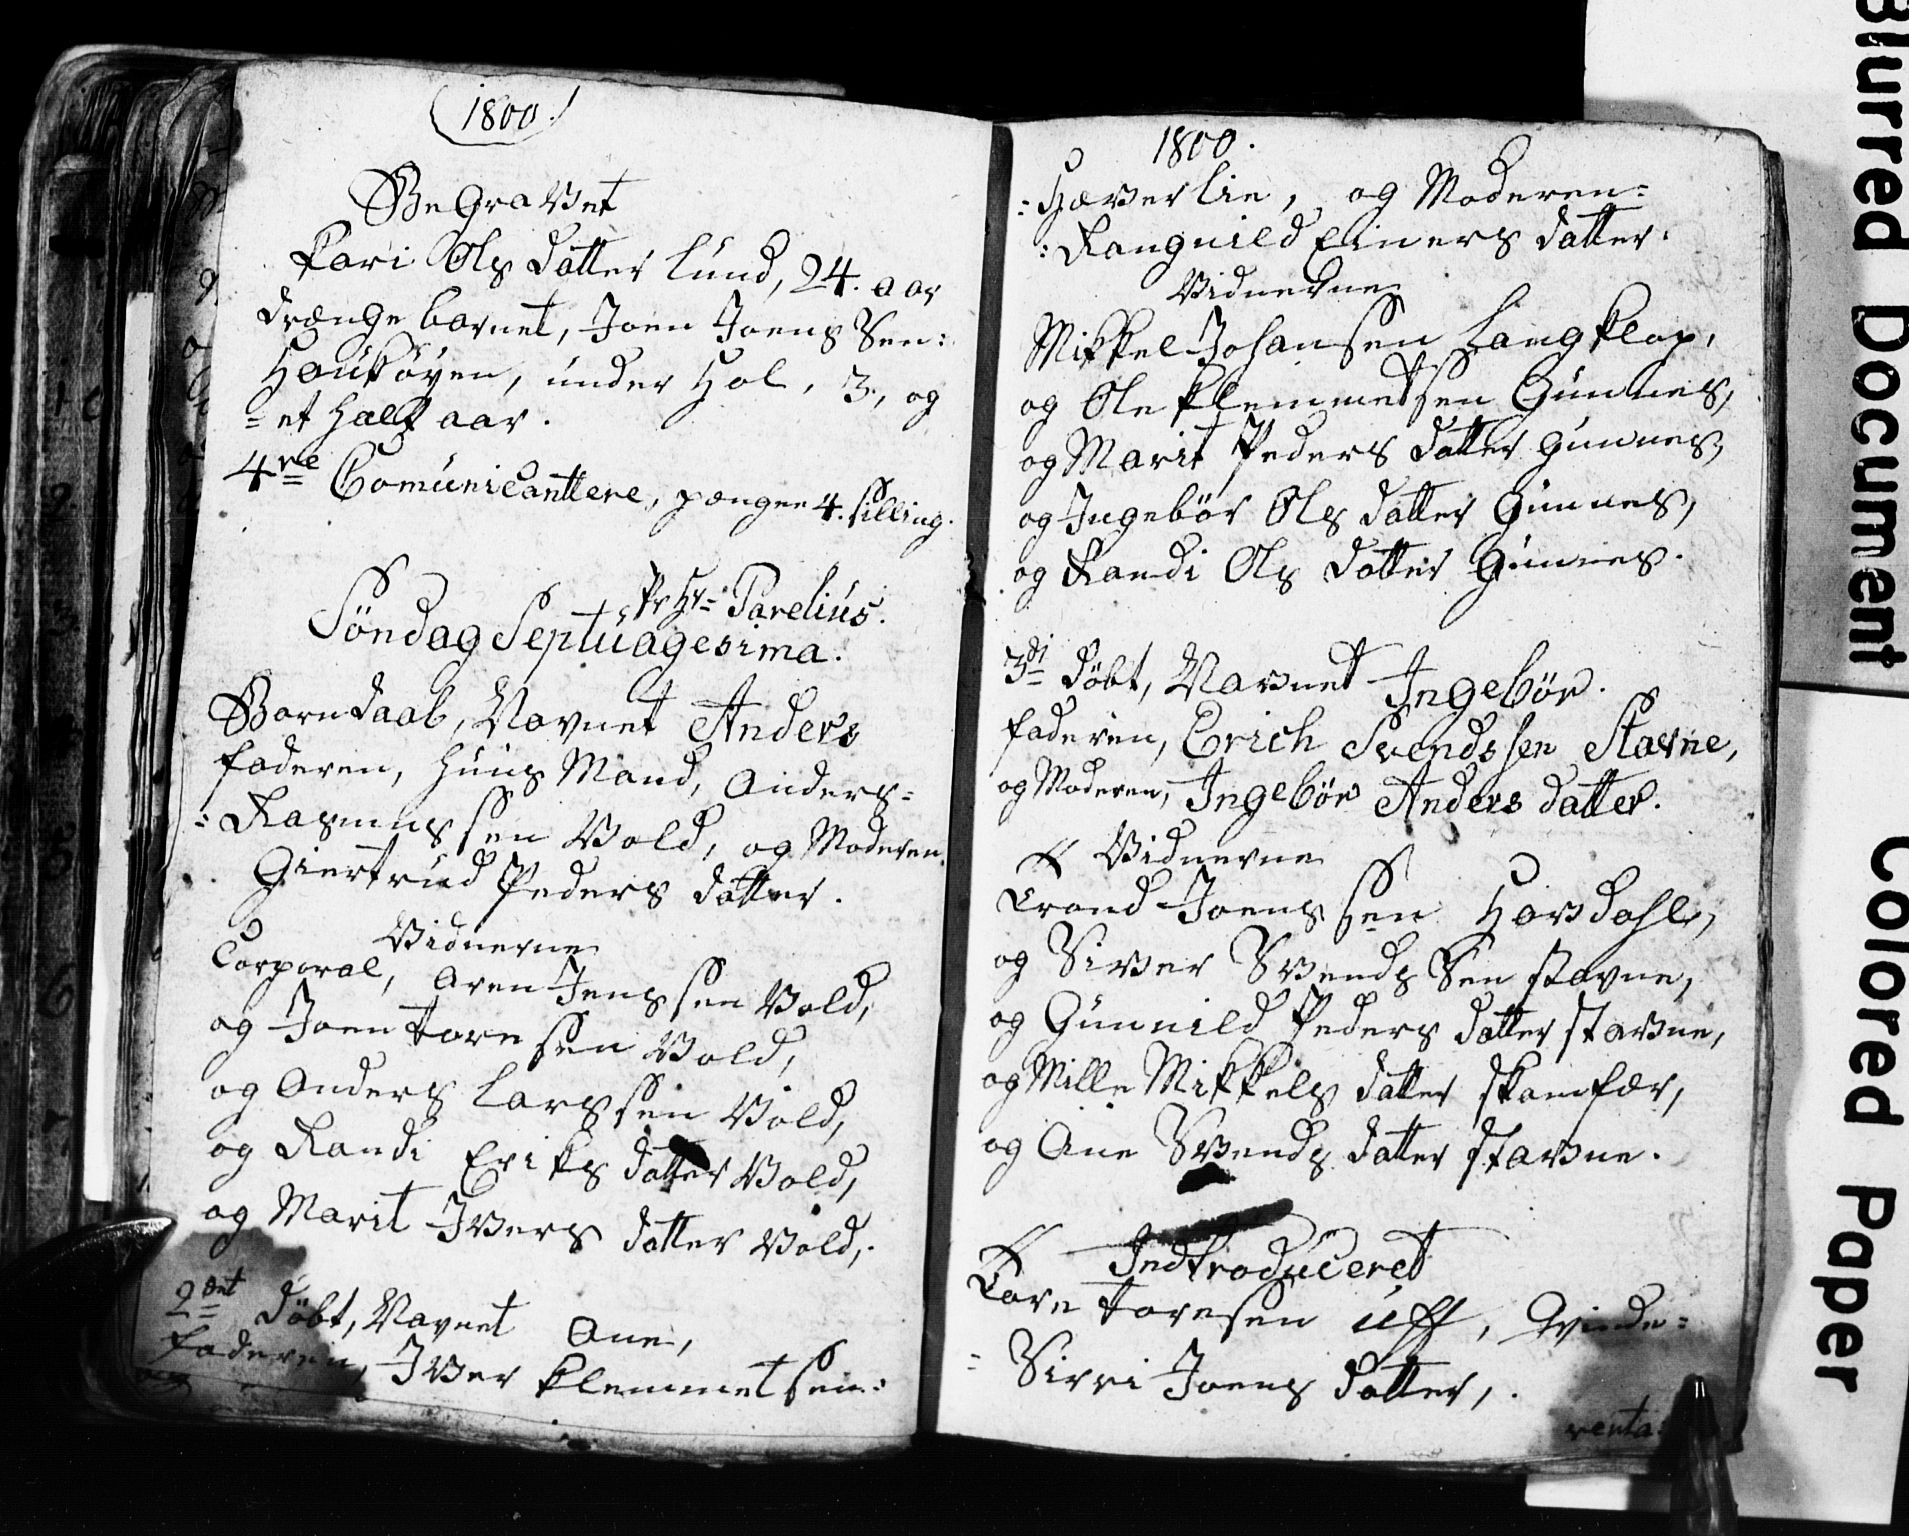 1800.
Begravet
Kari Ols datter Lund, 24. aar
drænge barnet, Joen Joens Sen:
Houkøyen, under Hol, 3, og
= et halft aar.
4re Comunicanttere, pængee 4. silling.
Pr Hr= Parelius.
Søndag Septuagesima.
Barndaab, Navnet Anders
faderen, Huus Mand, Anders=
:Rasmus sen Vold, og Moderen
Giertrud Peders datter.
Vidnerne
Corporal, Aren Jens sen Vold,
og Joen Tore sen Vold,
og Anders Lars sen Vold,
og Randi Eriks datter Vold,
og Marit Ivers datter Vold,.
2det døbt, Navnet Ane,
faderen, Iver Klemmet sen:
1800.
:Hæverlie, og Moderen=
:Rangnild Einers datter.
Vidnerne
Mikkel Johansen Langklop,
og Ole Klemmetsen Gunnes,
og Marit Peders datter Gunnes,
og Ingebør Ols datter Gunnes,
og Randi Ols datter Gunnes.
3di døbt, Navnet Ingebør.
faderen, Erich Svendssen Stavne,
og Moderen, Ingebør Anders datter.
Vidnerne
Trond Joens sen Hovdahl,
og Siver Svends Sen Stavne,
og Gunnild Peders datter Stavne,
og Mille Mikkels datter Skamfær,
og Ane Svends datter Stavne.
Indtroduceret
Tore Toresen Uff, Qvinde=
= Sirri Joens datter,.